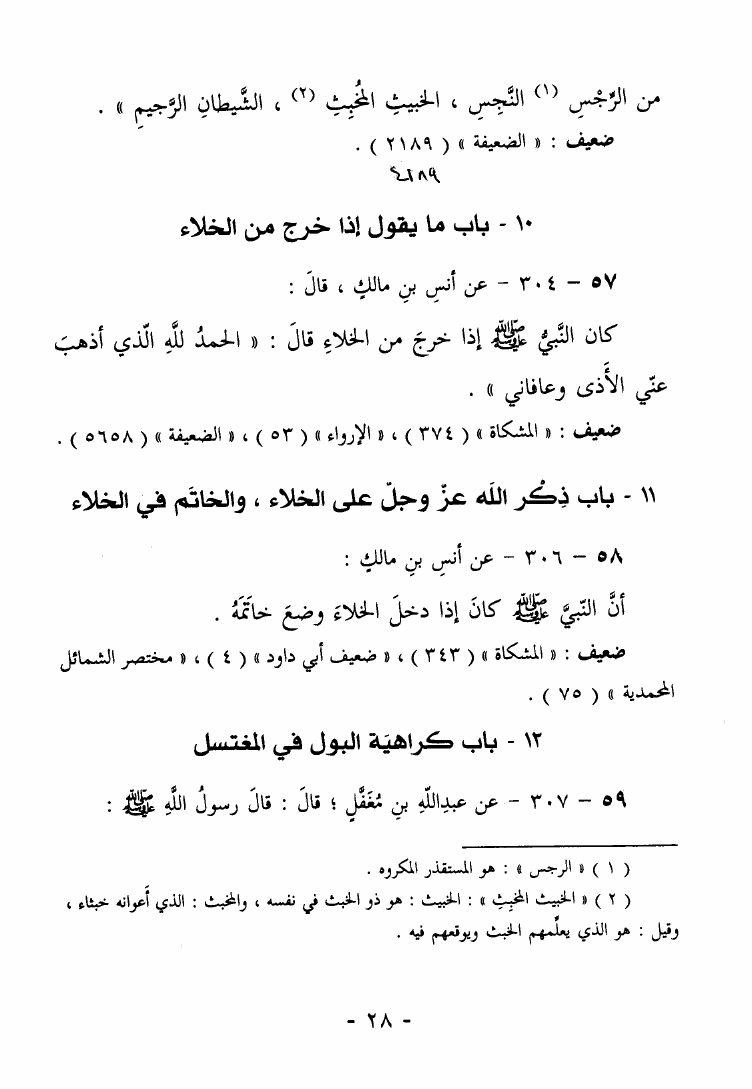 من الرِّجْسِ (١) النَّجِسِ ، الخبيثِ المُخْبِثِ (٢) ، الشَّيطانِ الرَّجيمِ » .
ضعيف : « الضعيفة » ( ٢١٨٩ ) .
٤١٨٩
١٠ - باب ما يقول إذا خرج من الخلاء
٥٧ – ٣٠٤ – عن أنسِ بنِ مالكٍ ، قالَ :
كان النَّبيُّ ﷺ إذا خرجَ من الخلاءِ قالَ : « الحمدُ للَّهِ الّذي أذهبَ
عنّي الأَذى وعافاني » .
ضعيف : « المشكاة » ( ٣٧٤ ) ، « الإرواء » ( ٥٣ ) ، « الضعيفة » ( ٥٦٥٨ ) .
١١ - باب ذِكْر اللَه عزّ وجلّ على الخلاء ، والخاتَم في الخلاء
٥٨ – ٣٠٦ – عن أنسِ بنِ مالكٍ :
أنَّ النّبيَّ ﷺ كانَ إذا دخلَ الخلاءَ وضعَ خاتَمَهُ .
ضعيف : « المشكاة » ( ٣٤٣ ) ، « ضعيف أبي داود » ( ٤ ) ، « مختصر الشمائل
المحمدية » ( ٧٥ ) .
١٢ - باب كراهيَة البول في المغتسل
٥٩ – ٣٠٧ – عن عبدِاللّهِ بنِ مُغَفَّلٍ ؛ قالَ : قالَ رسولُ اللَّهِ ﷺ :
( ١ ) « الرجس » : هو المستقذر المكروه .
( ٢ ) « الخبيث المخْبِثِ » : الخبيث : هو ذو الخبث في نفسه ، والمخبث : الذي أعوانه خبثاء ،
وقيل : هو الذي يعلِّمهم الخبث ويوقعهم فيه .
- ٢٨ -